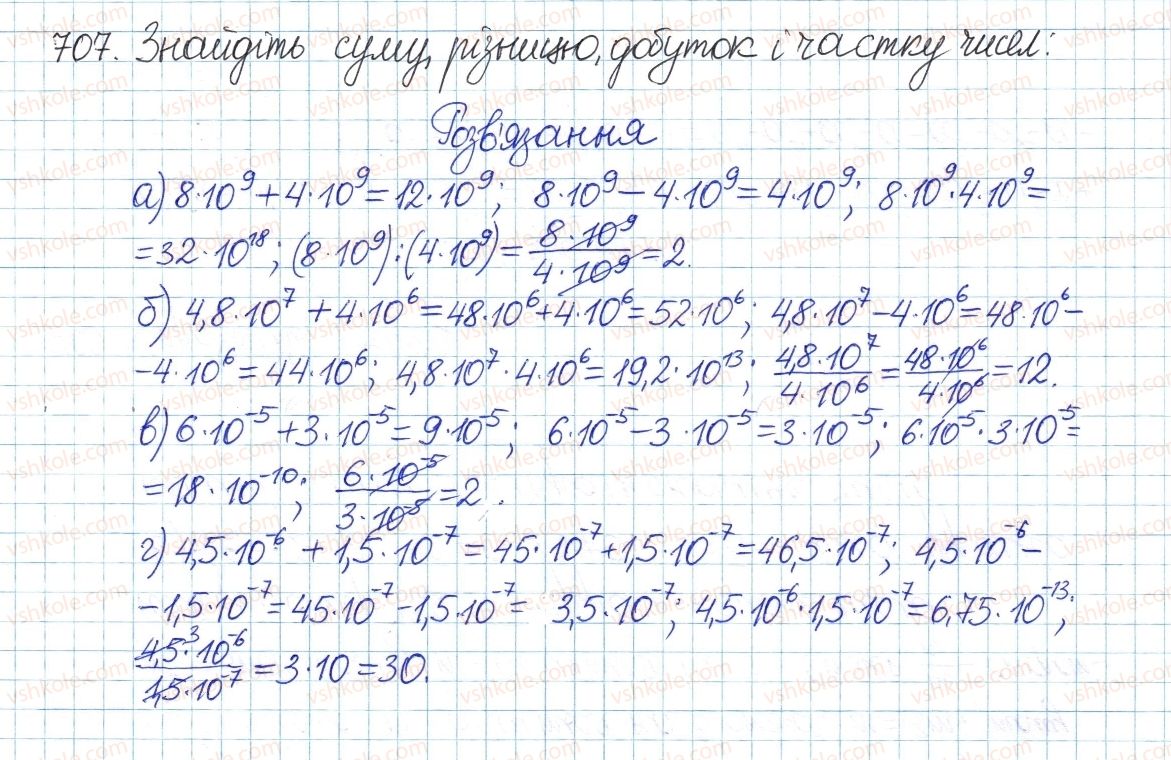 707. Знайдіть суму, різницю, добуток і частку чисел:
Розв'язання
а) 8·10⁹ + 4·10⁹ = 12·10⁹; 8·10⁹ − 4·10⁹ = 4·10⁹; 8·10⁹·4·10⁹ =
= 32·10¹⁸; (8·10⁹):(4·10⁹) = (8·10⁹)/(4·10⁹) = 2.
б) 4,8·10⁷ + 4·10⁶ = 48·10⁶ + 4·10⁶ = 52·10⁶; 4,8·10⁷ − 4·10⁶ = 48·10⁶ −
− 4·10⁶ = 44·10⁶; 4,8·10⁷·4·10⁶ = 19,2·10¹³; (4,8·10⁷)/(4·10⁶) = (48·10⁶)/(4·10⁶) = 12.
в) 6·10⁻⁵ + 3·10⁻⁵ = 9·10⁻⁵; 6·10⁻⁵ − 3·10⁻⁵ = 3·10⁻⁵; 6·10⁻⁵·3·10⁻⁵ =
= 18·10⁻¹⁰; (6·10⁻⁵)/(3·10⁻⁵) = 2.
г) 4,5·10⁻⁶ + 1,5·10⁻⁷ = 45·10⁻⁷ + 1,5·10⁻⁷ = 46,5·10⁻⁷; 4,5·10⁻⁶ −
− 1,5·10⁻⁷ = 45·10⁻⁷ − 1,5·10⁻⁷ = 3,5·10⁻⁷; 4,5·10⁻⁶·1,5·10⁻⁷ = 6,75·10⁻¹³;
(4,5³·10⁻⁶)/(1,5·10⁻⁷) = 3·10 = 30.
vshkole.com